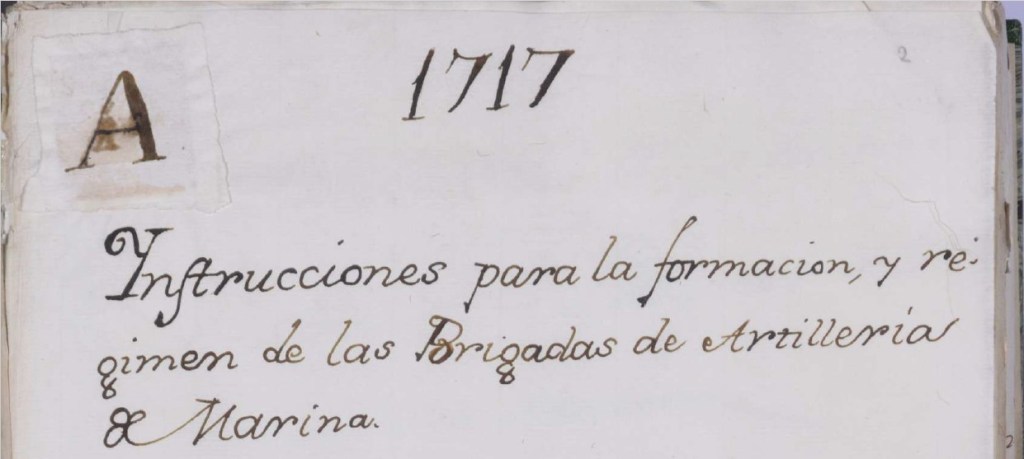 A
1717
2
Ynstrucciones para la formacion, y re-
gimen de las Brigadas de Artillería
de Marina.